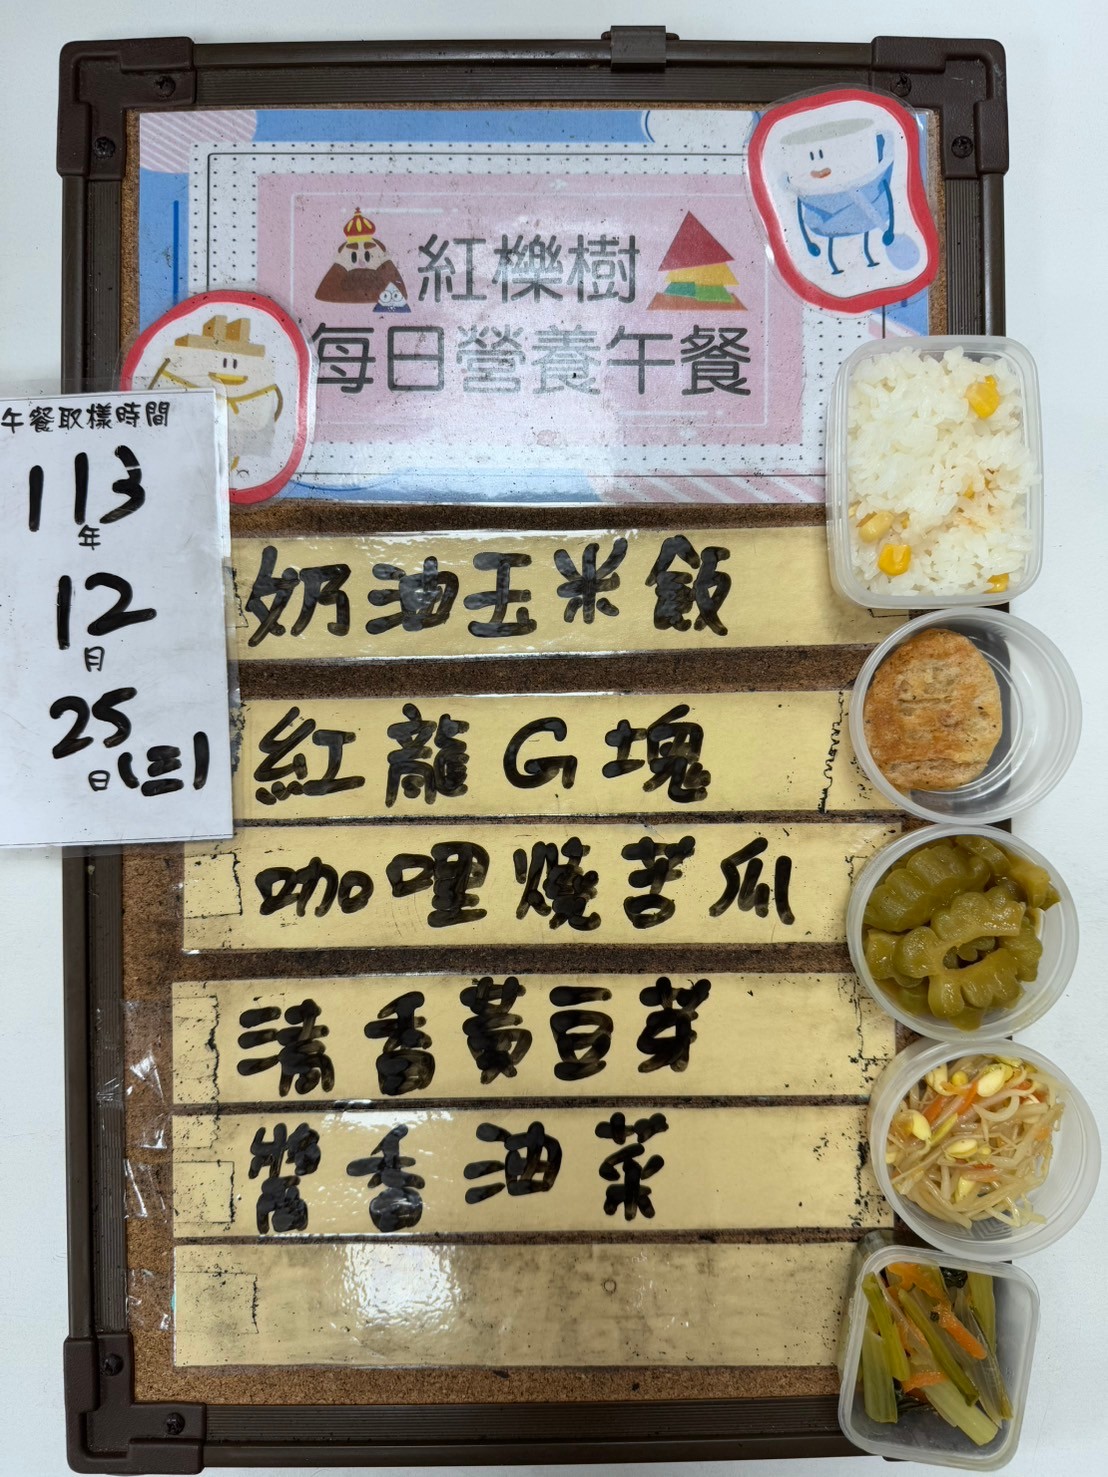 紅櫟樹
每日營養午餐
午餐取樣時間
113
年
12
月
25
日(三)
奶油玉米飯
紅龍G塊
咖哩燒苦瓜
清香黃豆芽
醬香油菜